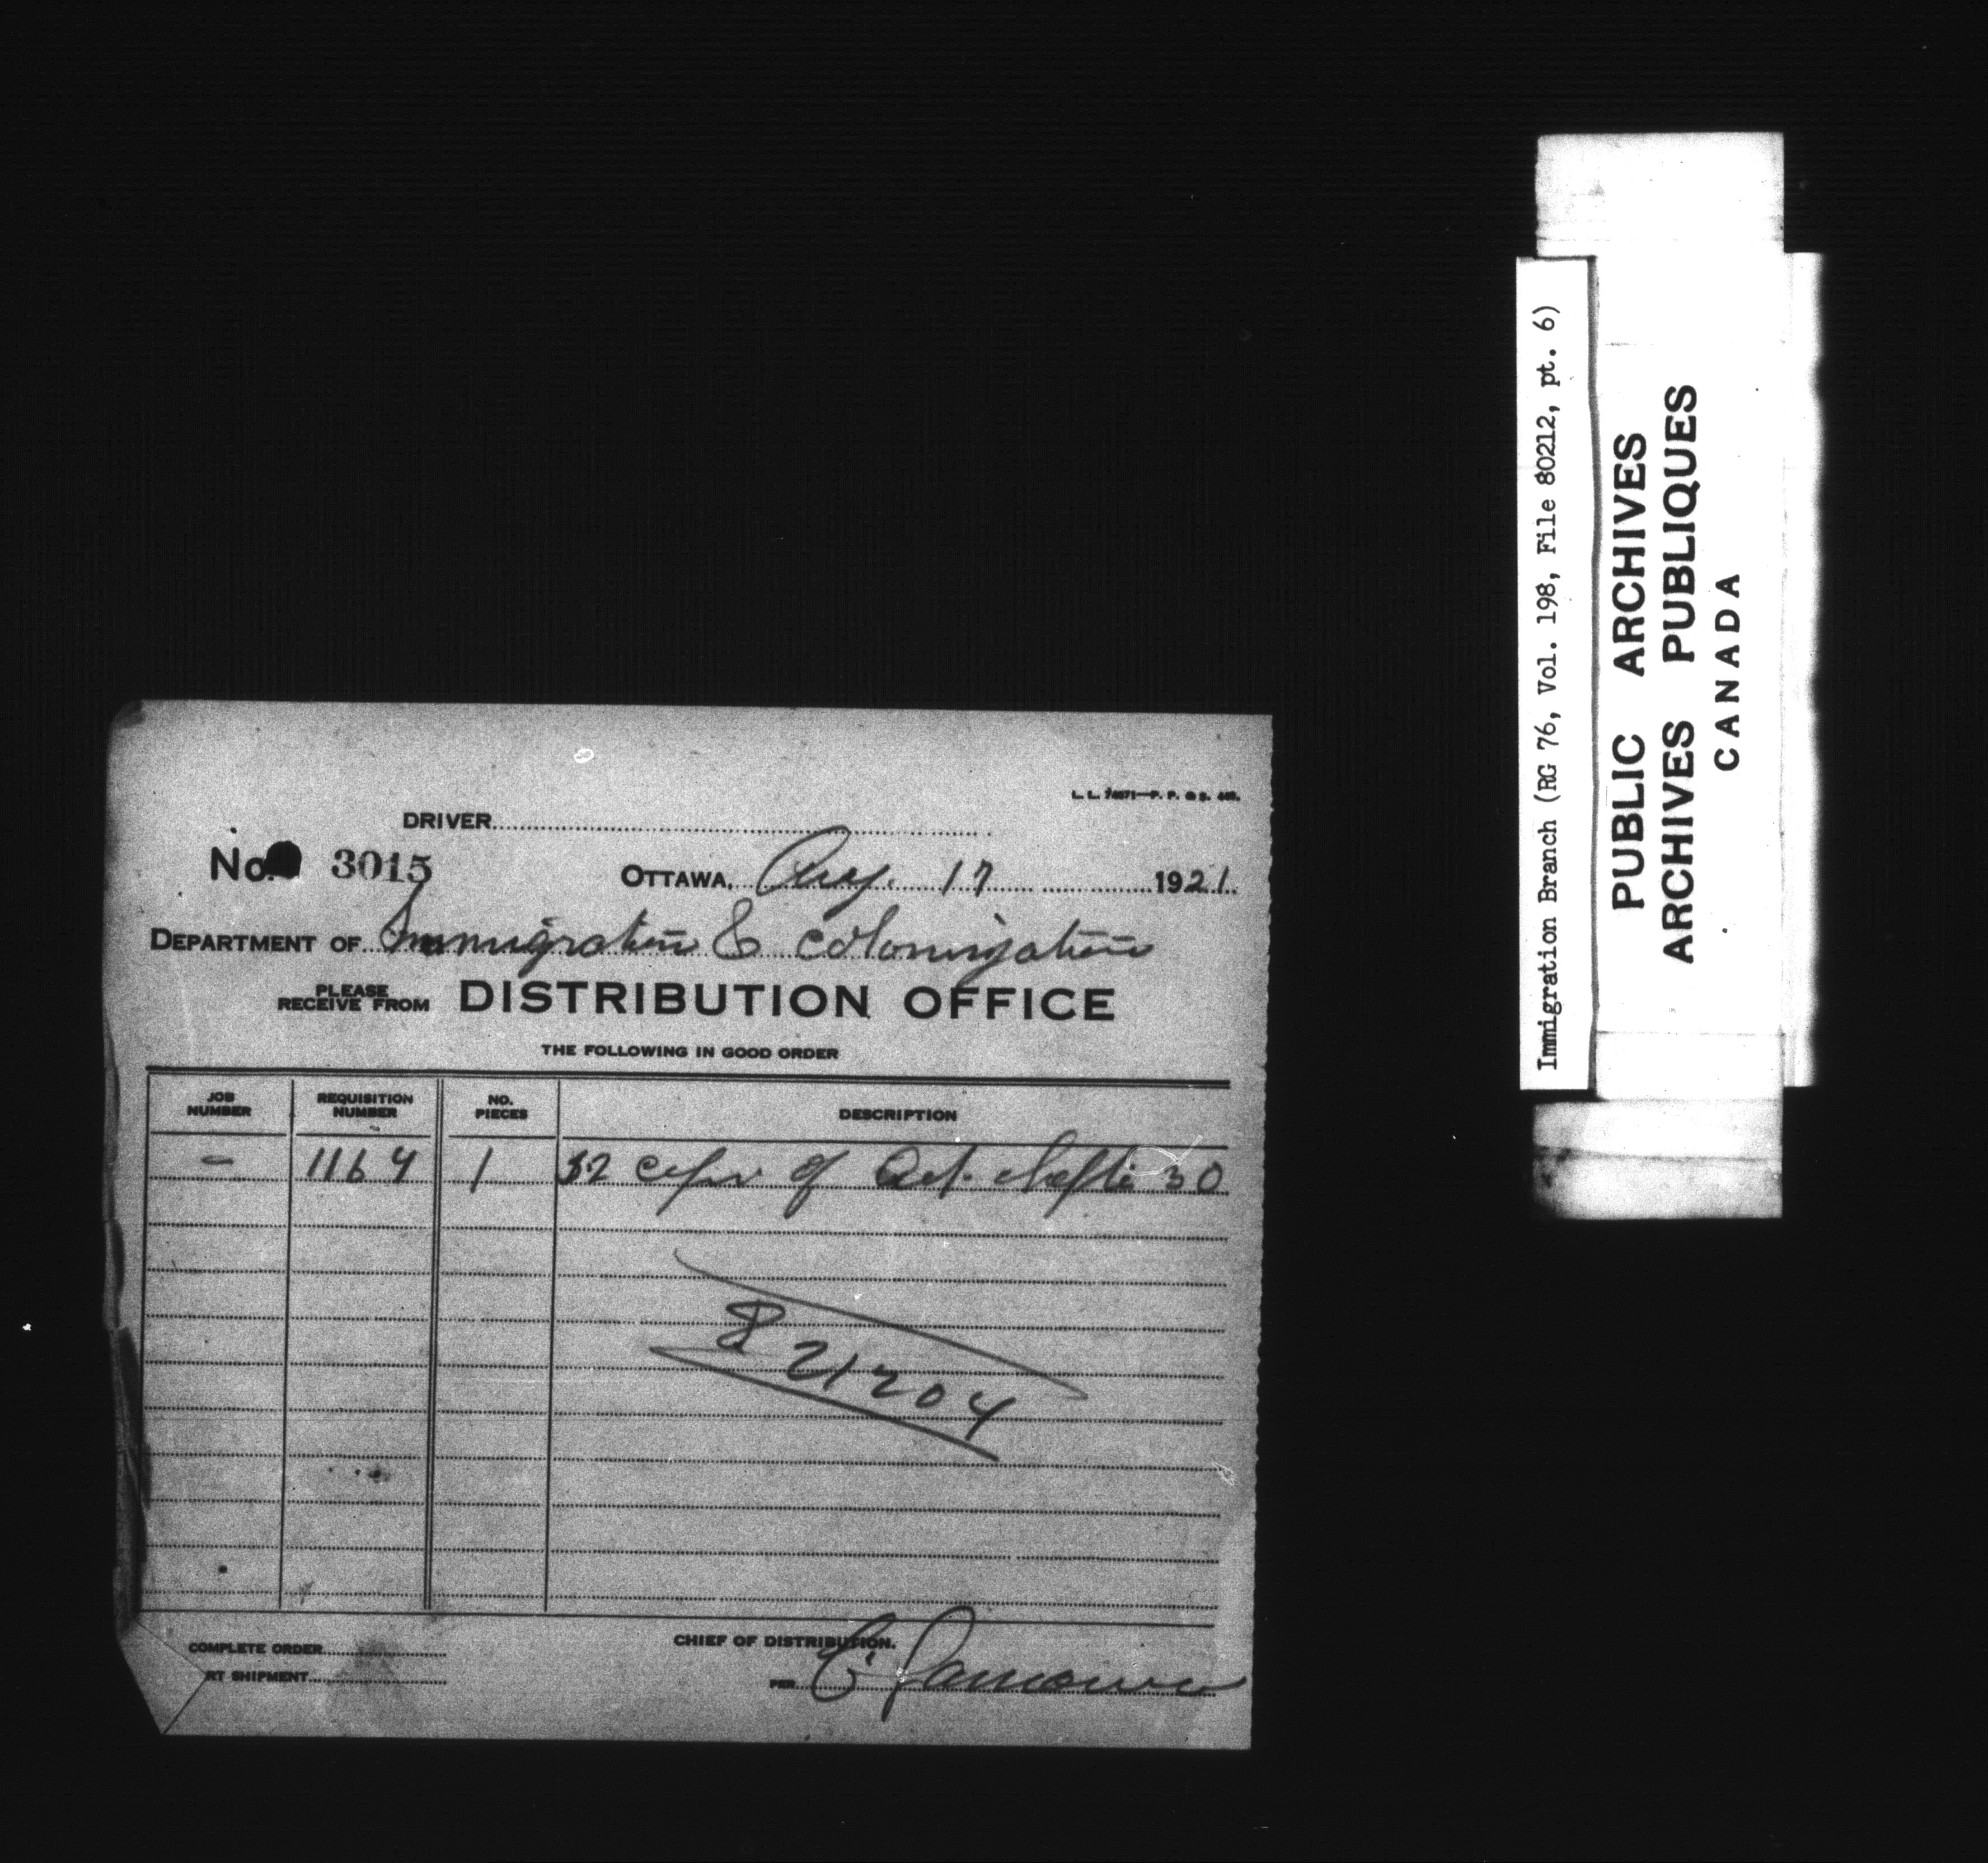 L. L. 74071—P. P. & S. 449.
DRIVER
No. 3015 OTTAWA, Aug. 17 1921.
DEPARTMENT OF Immigration & Colonization
PLEASE RECEIVE FROM DISTRIBUTION OFFICE
THE FOLLOWING IN GOOD ORDER
JOB NUMBER REQUISITION NUMBER NO. PIECES DESCRIPTION
— 1164 1 32 copies of Act. chapter 30
821204
COMPLETE ORDER
RT SHIPMENT
CHIEF OF DISTRIBUTION.
PER
Immigration Branch (RG 76, Vol. 198, File 80212, pt. 6)
PUBLIC ARCHIVES
ARCHIVES PUBLIQUES
CANADA